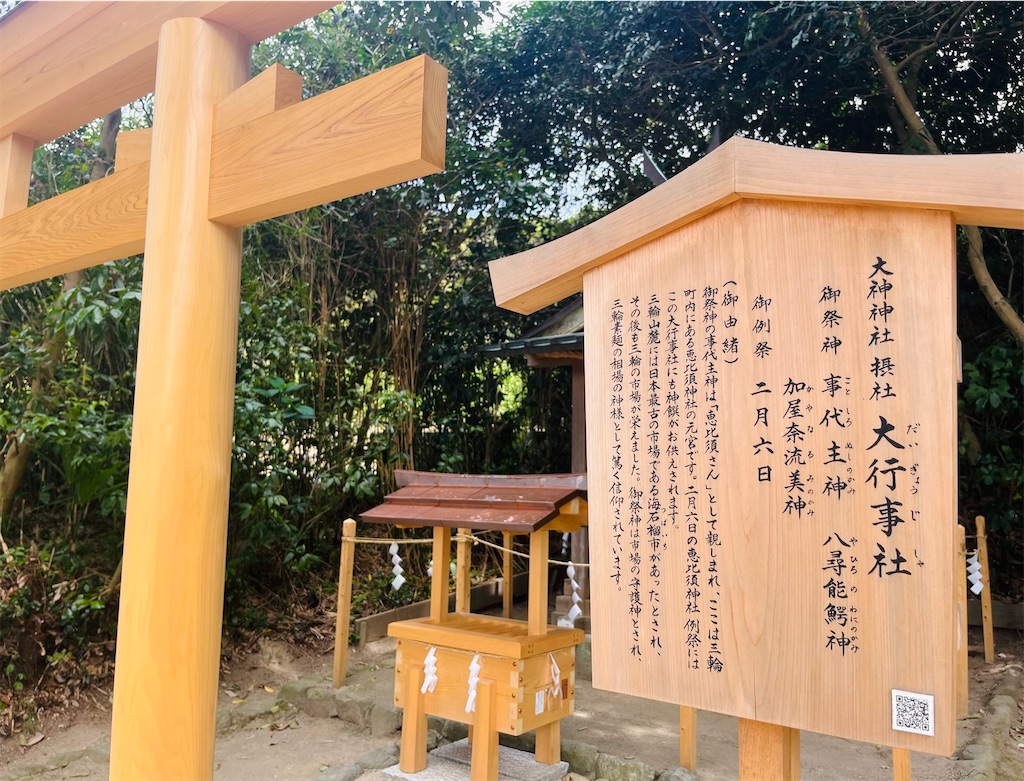 大神神社 摂社 大行事社
だいぎょうじしゃ
御祭神 事代主神 八尋能鰐神
ことしろぬしのかみ やひろのわにのかみ
加屋奈流美神
かやなるみのみみ
御例祭 二月六日
(御由緒)
御祭神の事代主神は「恵比須さん」として親しまれ、ここは三輪
町内にある恵比須神社の元宮です。二月六日の恵比須神社例祭には
この大行事社にも神饌がお供えされます。
三輪山麓には日本最古の市場である海石榴市があったとされ、
つばいち
その後も三輪の市場が栄えました。御祭神は市場の守護神とされ、
三輪素麺の相場の神様として篤く信仰されています。